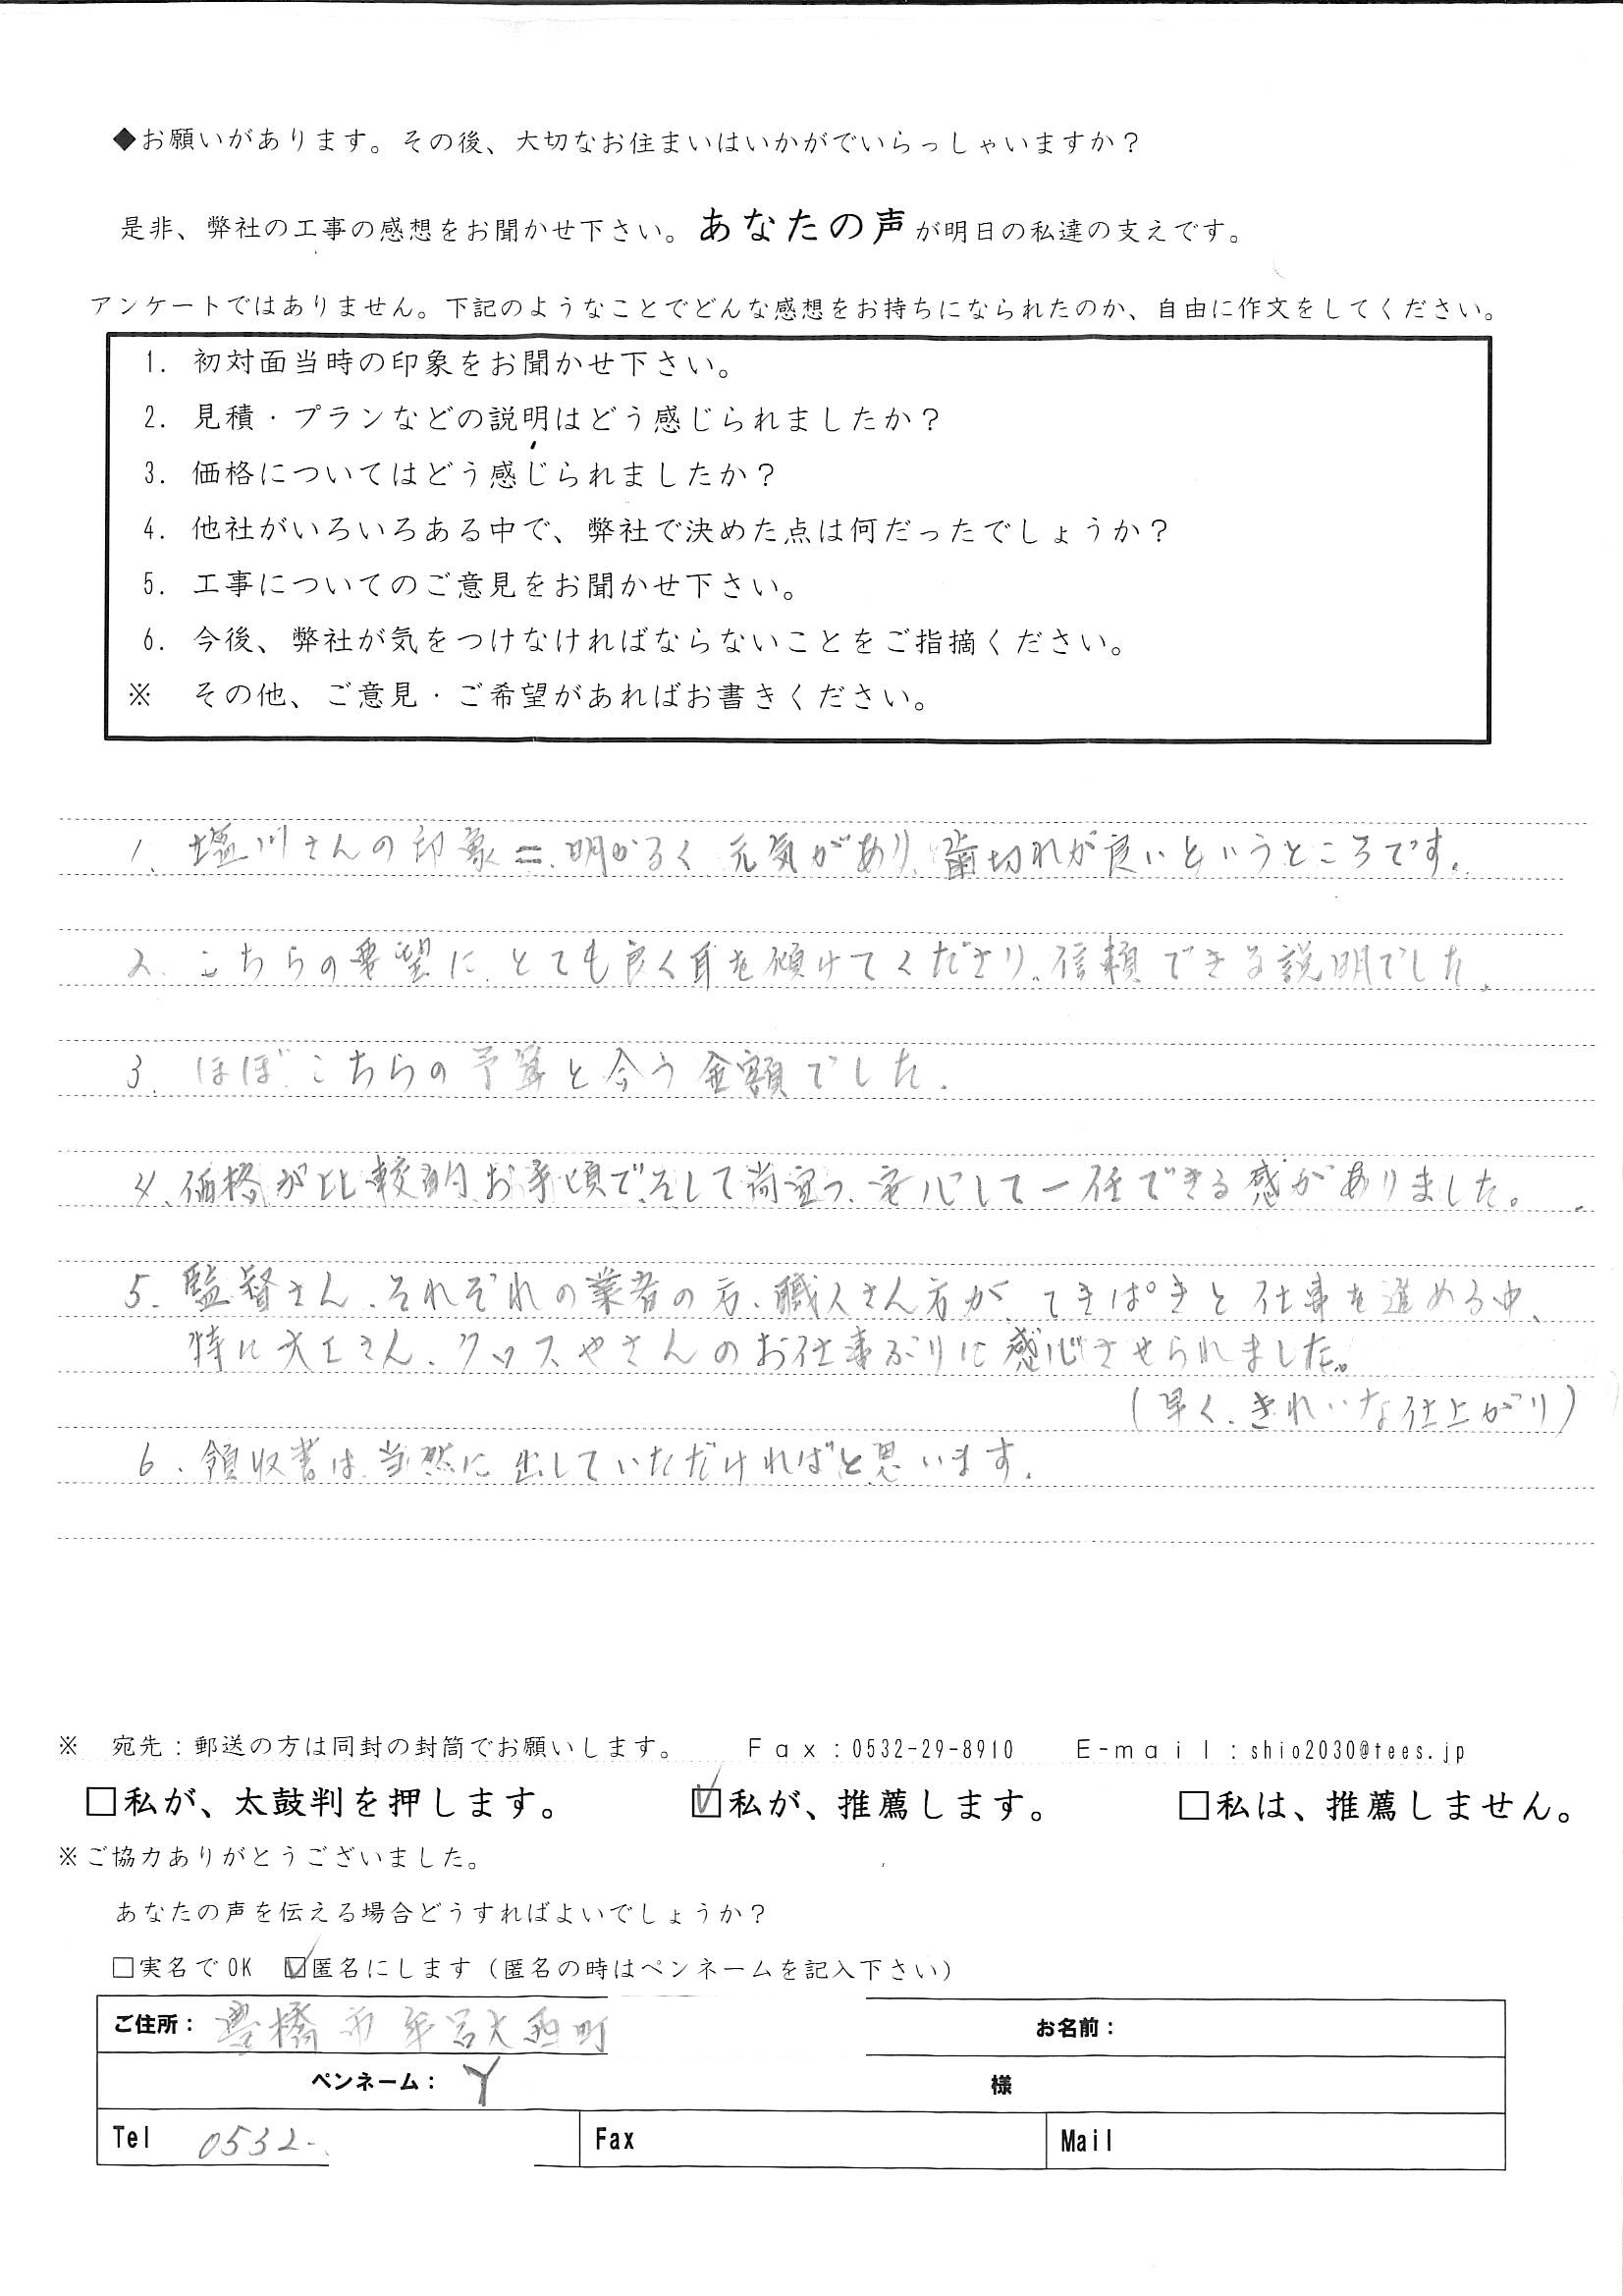 ◆お願いがあります。その後、大切なお住まいはいかがでいらっしゃいますか？
是非、弊社の工事の感想をお聞かせ下さい。あなたの声が明日の私達の支えです。
アンケートではありません。下記のようなことでどんな感想をお持ちになられたのか、自由に作文をしてください。
1. 初対面当時の印象をお聞かせ下さい。
2. 見積・プランなどの説明はどう感じられましたか？
3. 価格についてはどう感じられましたか？
4. 他社がいろいろある中で、弊社で決めた点は何だったでしょうか？
5. 工事についてのご意見をお聞かせ下さい。
6. 今後、弊社が気をつけなければならないことをご指摘ください。
※ その他、ご意見・ご希望があればお書きください。
1. 塩川さんの印象＝明かるく元気があり、歯切れが良いというところです。
2. こちらの要望に、とても良く耳を傾けてくださり、信頼できる説明でした。
3. ほぼこちらの予算と合う金額でした。
4. 価格が比較的お手頃で、そして、安心して一任できる感がありました。
5. 監督さん、それぞれの業者の方、職人さん方が、てきぱきと仕事を進める中、
特に大工さん、クロスやさんのお仕事ぶりに感心させられました。
(早く、きれいな仕上がり)
6. 領収書は当然に出していただければと思います。
※ 宛先：郵送の方は同封の封筒でお願いします。 Fax：0532-29-8910 E-mail：shio2030@tees.jp
□私が、太鼓判を押します。 ☑私が、推薦します。 □私は、推薦しません。
※ご協力ありがとうございました。
あなたの声を伝える場合どうすればよいでしょうか？
□実名でOK ☑匿名にします（匿名の時はペンネームを記入下さい）
ご住所： 豊橋市牟呂大西町 お名前：
ペンネーム： Y 様
Tel 0532-. Fax Mail